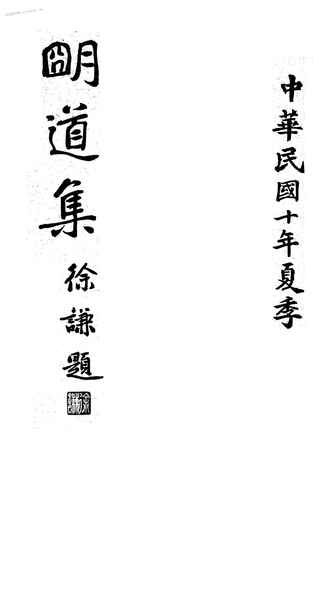 中華民國十年夏季
朙道集
徐謙題